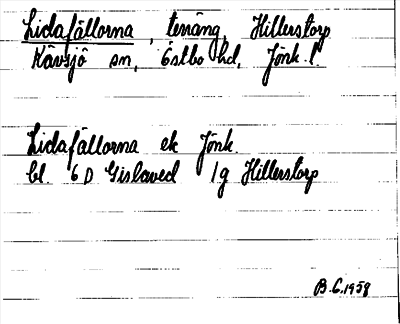 Lidafällorna, terräng, Hillerstorp
Kävsjö sn, Östbo hd, Jönk. l.
Lidafällorna ek Jönk.
bl. 6D Gislaved 1g Hillerstorp
B.E. 1958